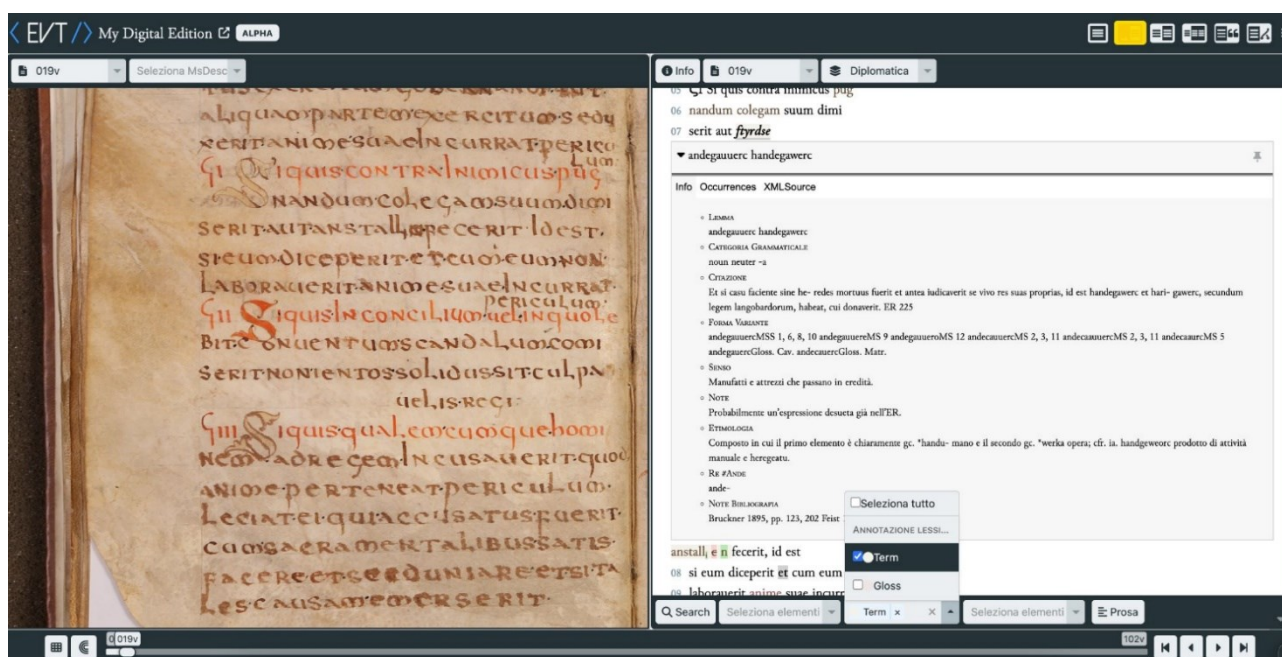 EVT
My Digital Edition
ALPHA
019v
Seleziona MsDesc
Info
019v
Diplomatica
aliquam partem exercitum sedu
xerit anime suae incurrat pericu
lum
GI Si quis contra inimicus pug
nandum colegam suum dimi
serit aut anstallin fecerit id est
si eum diceperit et cum eum non
laborauerit anime suae incurrat
periculum
GII Si quis in concilium uel in quole
bit conuentum scandalum comi
serit nongentos solidus sit culpa
uelis regi
GIII Si quis qualemcumque homi
nem ad regem incusauerit quod
anime perteneat periculum
leciat ei qui accusatus fuerit
cum sacramentalibus satis
facere et se eduniare et si ta
les causam emerserit
05 Si quis contra inimicus pug
06 nandum colegam suum dimi
07 serit aut ftyrdse
andegauuerc handegawerc
Info Occurrences XMLSource
Lemma
andegauuerc handegawerc
Categoria Grammaticale
noun neuter -a
Citazione
Et si casu faciente sine he- redes mortuus fuerit et antea iudicaverit se vivo res suas proprias, id est handegawerc et hari- gawerc, secundum
legem langobardorum, habeat, cui donaverit. ER 225
Forma Variante
andegauuercMSS 1, 6, 8, 10 andegauuereMS 9 andegauueroMS 12 andecauuercMS 2, 3, 11 andecauuercMS 2, 3, 11 andecauurcMS 5
andegauercGloss. Cav. andecauercGloss. Matr.
Senso
Manufatti e attrezzi che passano in eredità.
Note
Probabilmente un'espressione desueta già nell'ER.
Etimologia
Composto in cui il primo elemento è chiaramente gc. *handu- mano e il secondo gc. *werka opera; cfr. ia. handgeweorc prodotto di attività
manuale e heregeatu.
Re #Ande
ande-
Note Bibliografia
Bruckner 1895, pp. 123, 202 Feist
Seleziona tutto
Annotazione lessi...
Term
Gloss
anstall, e n fecerit, id est
08 si eum diceperit et cum eum
09 laborauerit anime suae incurr
Search
Seleziona elementi
Term
Seleziona elementi
Prosa
019v
102v